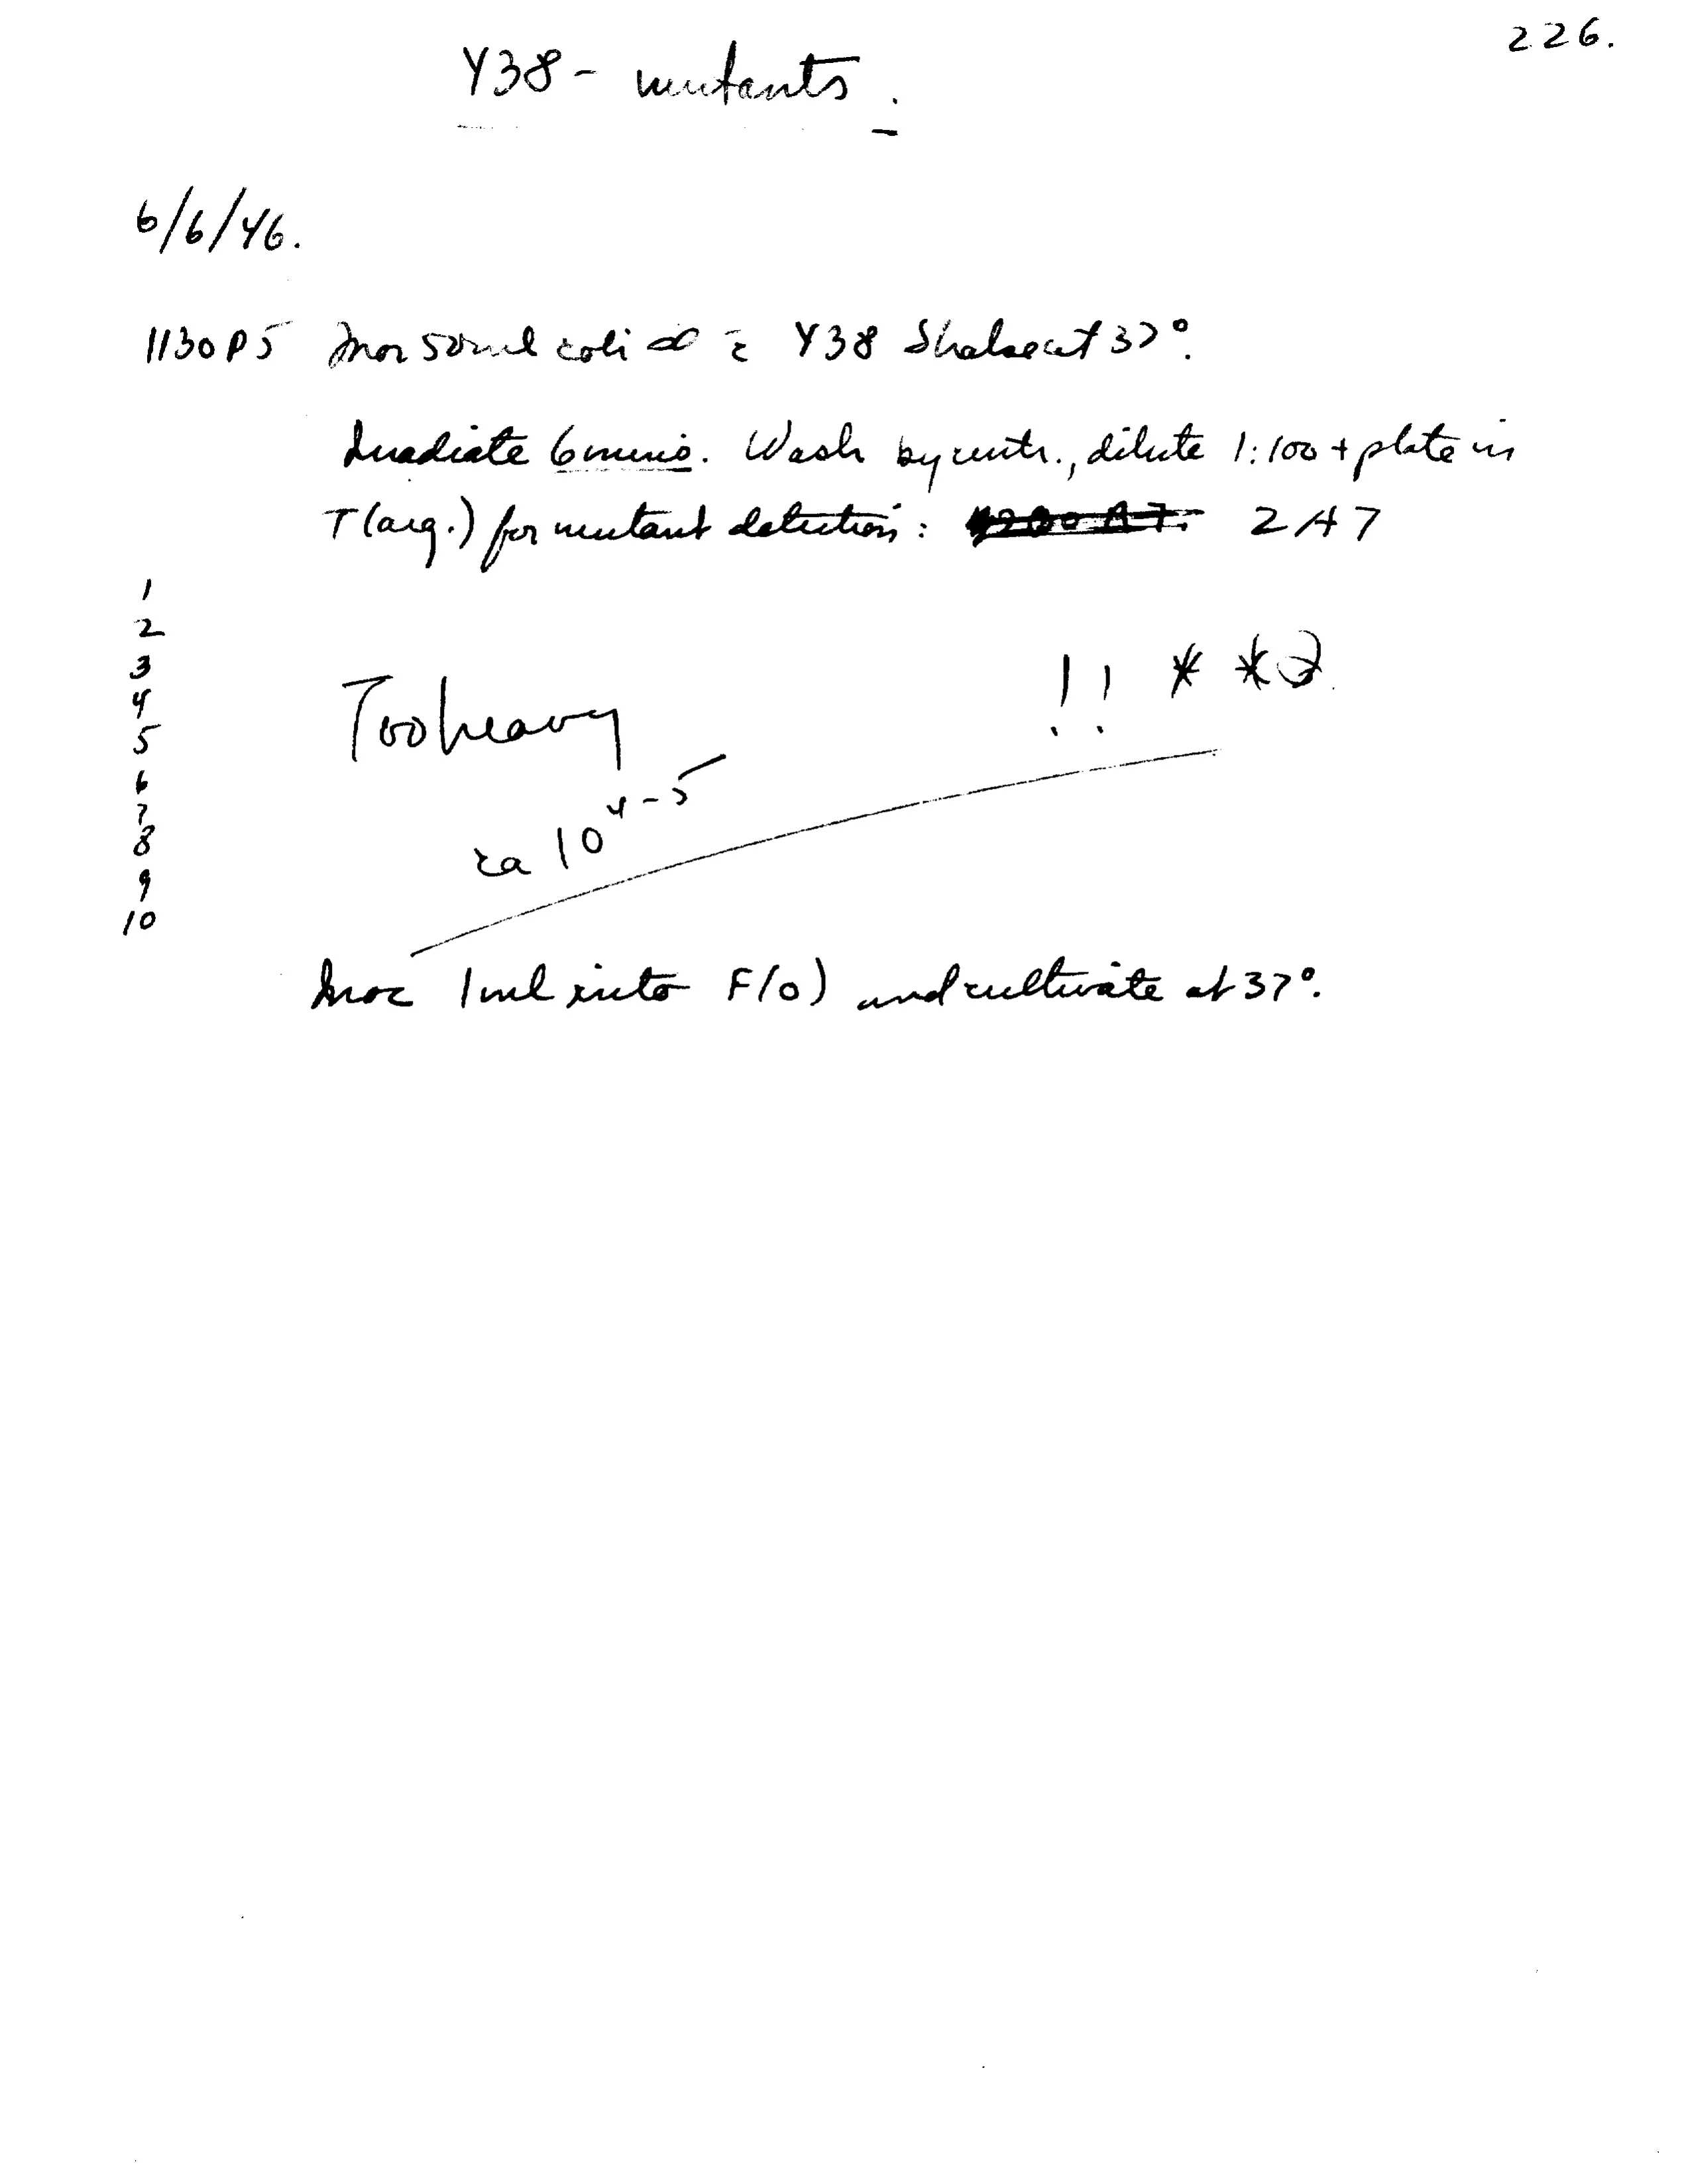 226.
Y38 - mutants.
6/6/46.
1130 P5 Inoc 50ml coli c̄ Y38 Shake at 37°.
Irradiate 6 mins. Wash by centr., dilute 1:100 + plate in
T(arg.) for mutant detection: 2 A 7
1
2
3
4
5
6
7
8
9
10
Too heavy !! * *
ca 10^4-5
Inoc 1 ml into F(0) and cultivate at 37°.